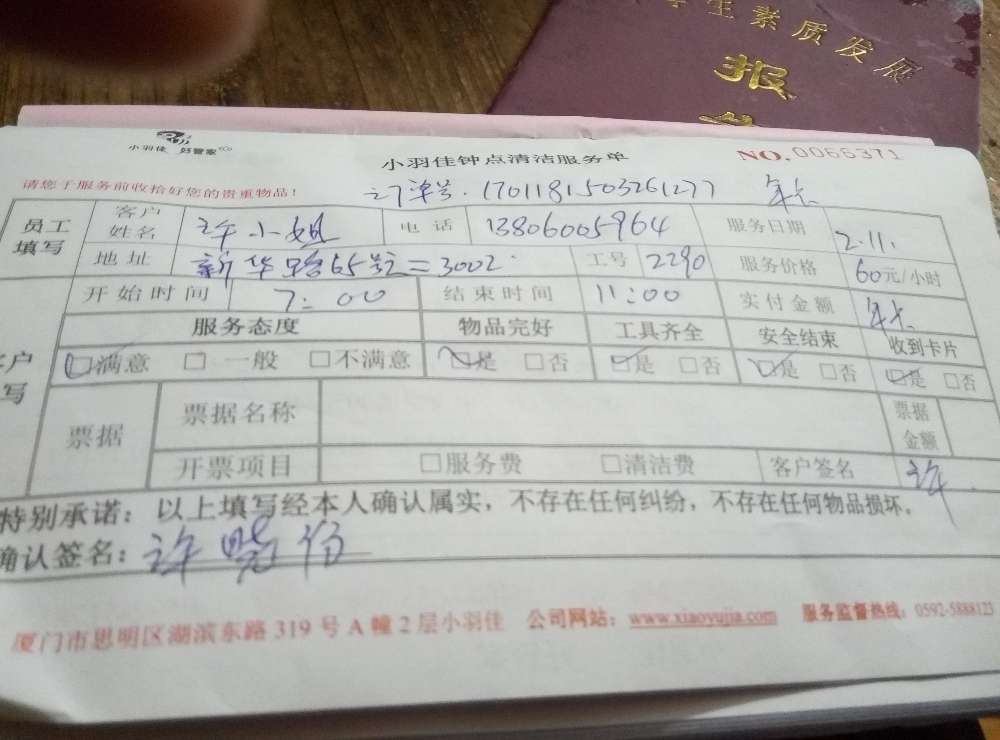 学生素质发展
报
小羽佳 好管家
小羽佳钟点清洁服务单 NO.0066371
请您于服务前收拾好您的贵重物品! 订单号.1701181503261277 年卡
员工填写 客户姓名 许小姐 电话 13806005964 服务日期 2.11.
地址 新华路65号二3002 工号 2290 服务价格 60元/小时
开始时间 7:00 结束时间 11:00 实付金额 年卡
客户填写 服务态度 物品完好 工具齐全 安全结束 收到卡片
□满意 □一般 □不满意 □是 □否 □是 □否 □是 □否 □是 □否
票据 票据名称 票据金额
开票项目 □服务费 □清洁费 客户签名 许
特别承诺:以上填写经本人确认属实,不存在任何纠纷,不存在任何物品损坏。
确认签名:许晓份
厦门市思明区湖滨东路319号A幢2层小羽佳 公司网站:www.xiaoyujia.com 服务监督热线:0592-5888123